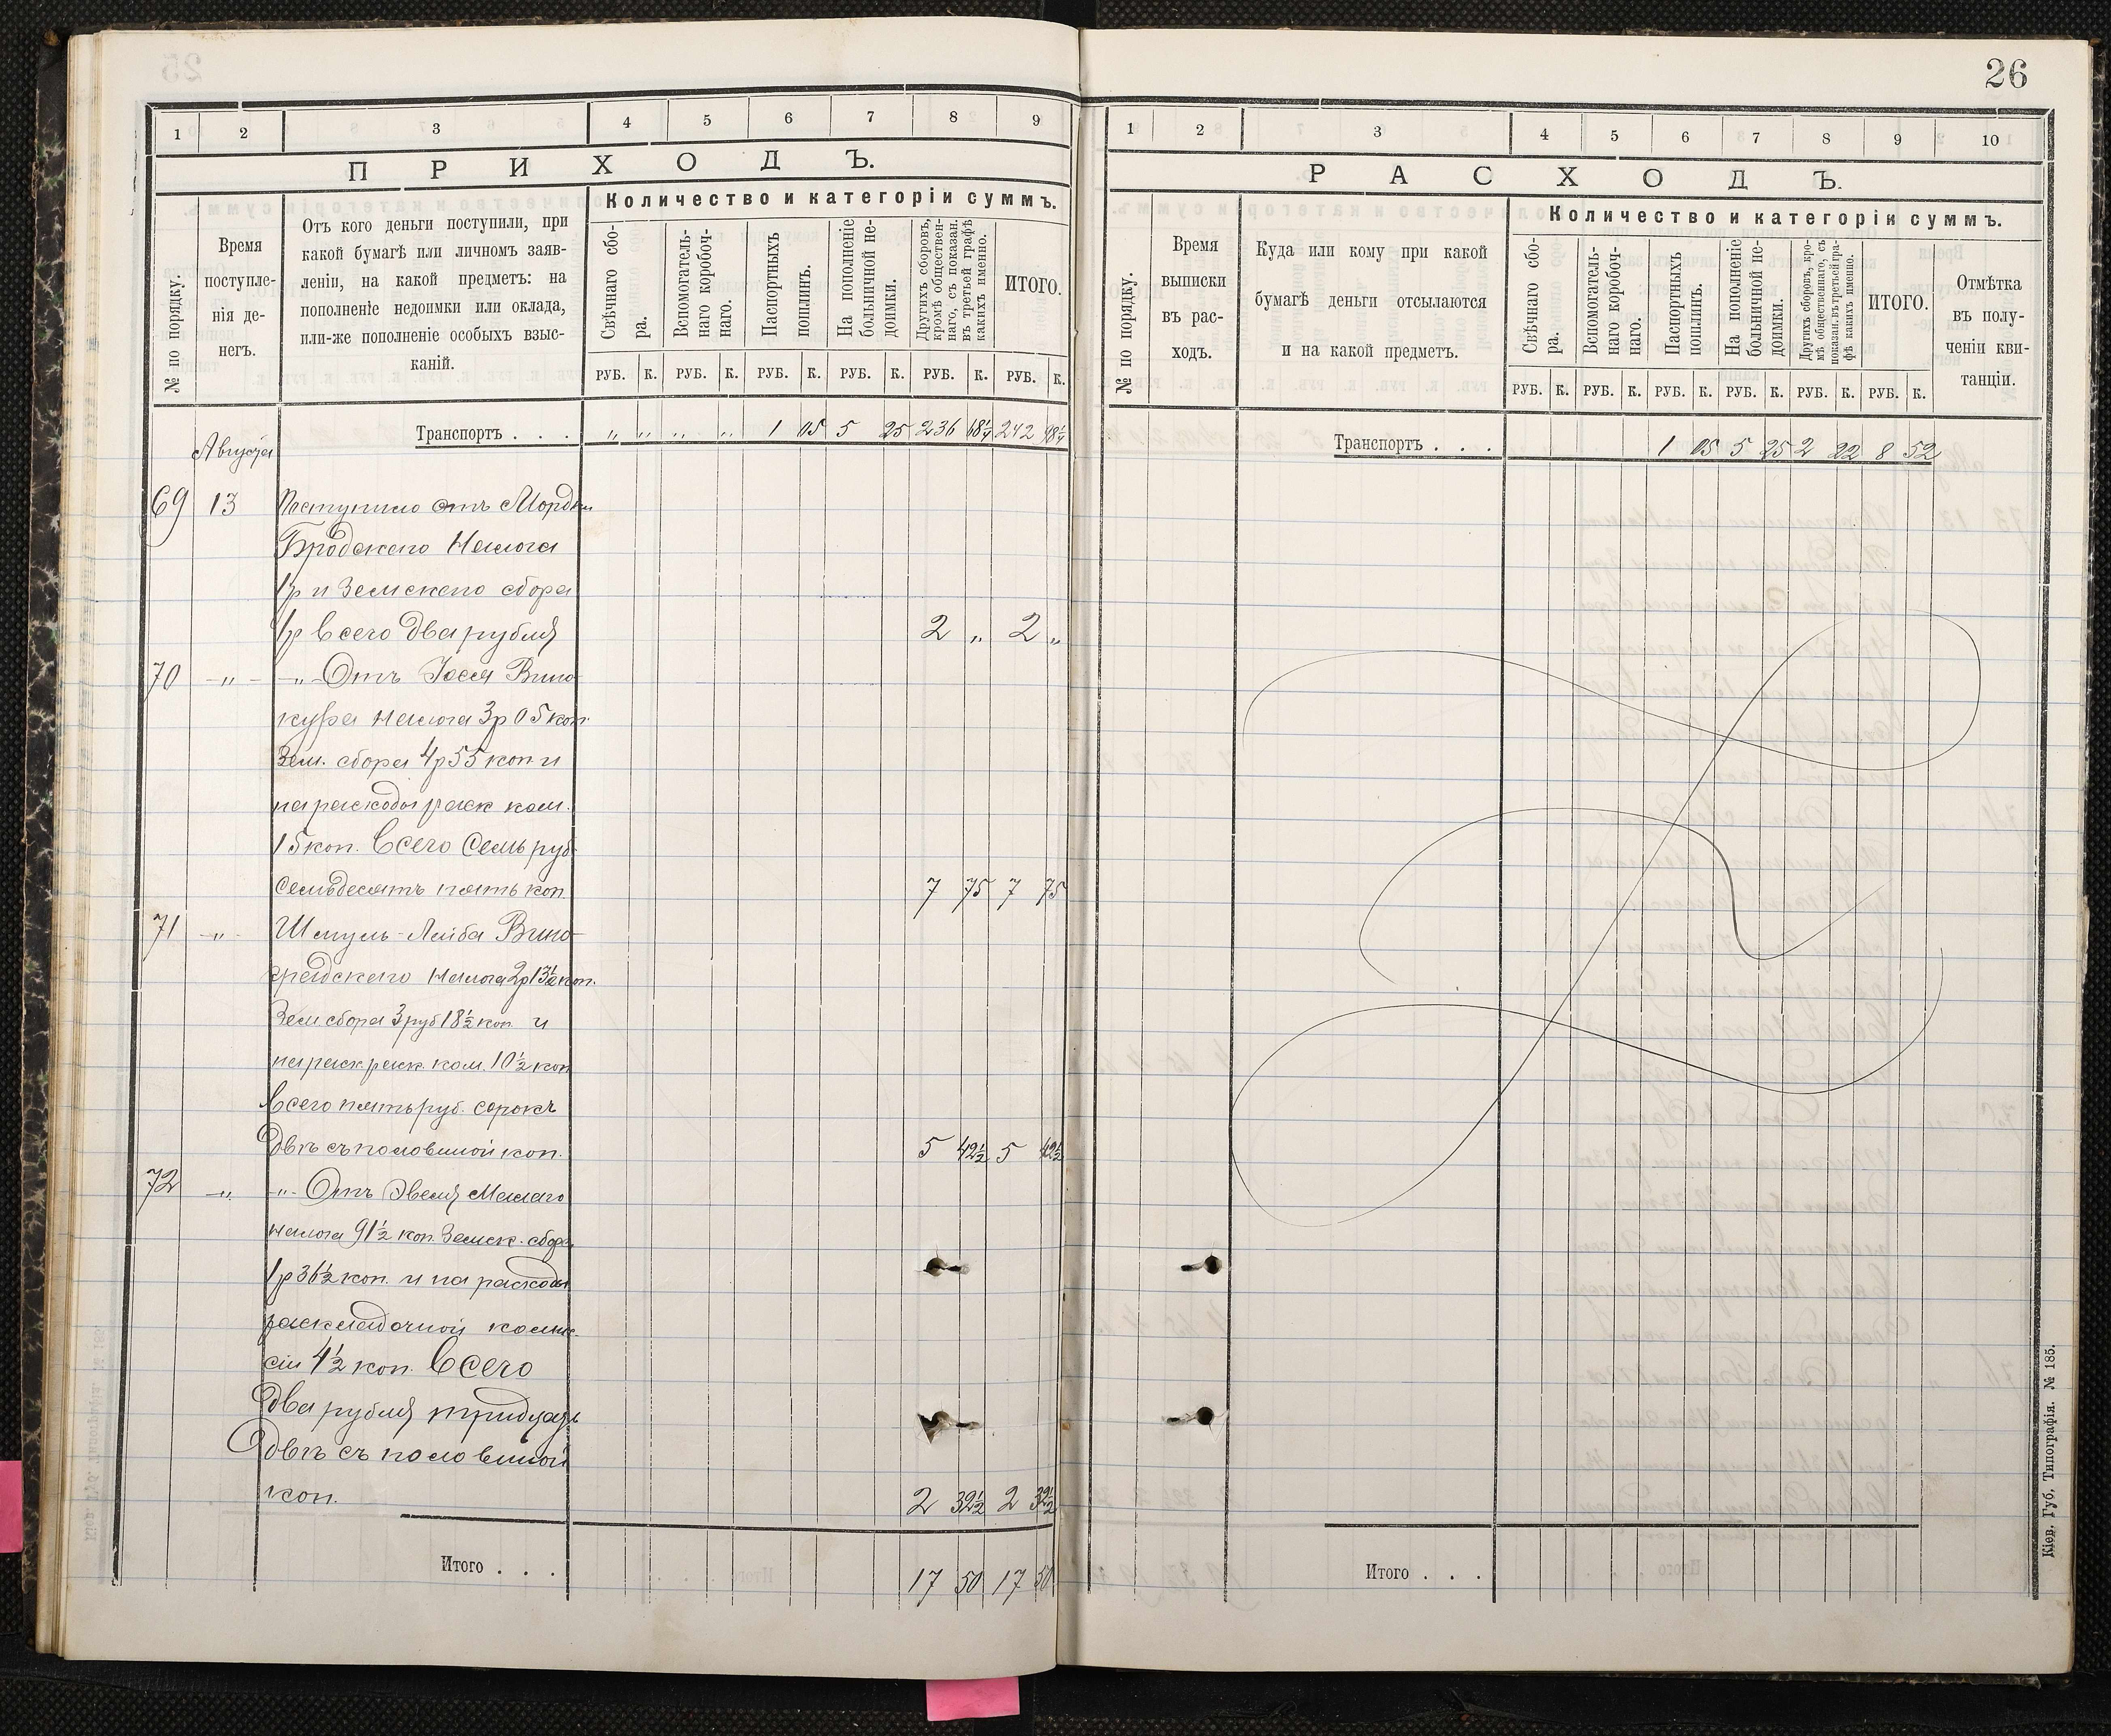 26
1 2 3 4 5 6 7 8 9
ПРИХОДЪ.
№ по порядку.
Время
поступле-
нія де-
негъ.
Отъ кого деньги поступили, при
какой бумагѣ или личномъ заяв-
леніи, на какой предметъ: на
пополненіе недоимки или оклада,
или-же пополненіе особыхъ взыс-
каній.
Количество и категоріи суммъ.
Свѣчнаго сбо-
ра.
Вспомогатель-
наго коробоч-
наго.
Паспортныхъ
пошлинъ.
На пополненіе
больничной не-
доимки.
Другихъ сборовъ,
кромѣ обществен-
наго, съ показан.
въ третьей графѣ
какихъ именно.
ИТОГО.
РУБ. К. РУБ. К. РУБ. К. РУБ. К. РУБ. К. РУБ. К.
Транспортъ . . . „ „ „ „ 1 05 5 25 236 68¼ 242 98¼
Августа
69 13 Поступило отъ Мордки
Бродскаго налога
1р и Земскаго сбора
1р Всего два рубля 2 „ 2 „
70 -„- -„- Отъ Іося Вино-
кура налога 3р 05 коп.
Зем. сбора 4р 55 коп и
на расходы раск ком.
15 коп. Всего Семь руб
Семьдесятъ пять коп. 7 75 7 75
71 -„- Шмуль-Лейба Вино-
градскаго налога 2р 13½ коп.
Зем сбора 3 руб 18½ коп и
на расх. раск. ком. 10½ коп
Всего пять руб. сорокъ
двѣ съ половиной коп. 5 42½ 5 42½
72 -„- -„- Отъ Эвеля Малаго
налога 91½ коп. Земск. сбора
1р 36½ коп. и на расходы
раскладочной комис-
сіи 4½ коп. Всего
два рубля тридцать
двѣ съ половиной
коп. 2 32½ 2 32½
Итого . . . 17 50 17 50
1 2 3 4 5 6 7 8 9 10
РАСХОДЪ.
№ по порядку.
Время
выписки
въ рас-
ходъ.
Куда или кому при какой
бумагѣ деньги отсылаются
и на какой предметъ.
Количество и категоріи суммъ.
Свѣчнаго сбо-
ра.
Вспомогатель-
наго коробоч-
наго.
Паспортныхъ
пошлинъ.
На пополненіе
больничной не-
доимки.
Другихъ сборовъ, кро-
мѣ общественнаго, съ
показан. въ третьей гра-
фѣ какихъ именно.
ИТОГО.
Отмѣтка
въ полу-
ченіи кви-
танціи.
РУБ. К. РУБ. К. РУБ. К. РУБ. К. РУБ. К. РУБ. К.
Транспортъ . . . 1 05 5 25 2 22 8 52
Итого . . .
Кіев. Губ. Типографія. № 185.